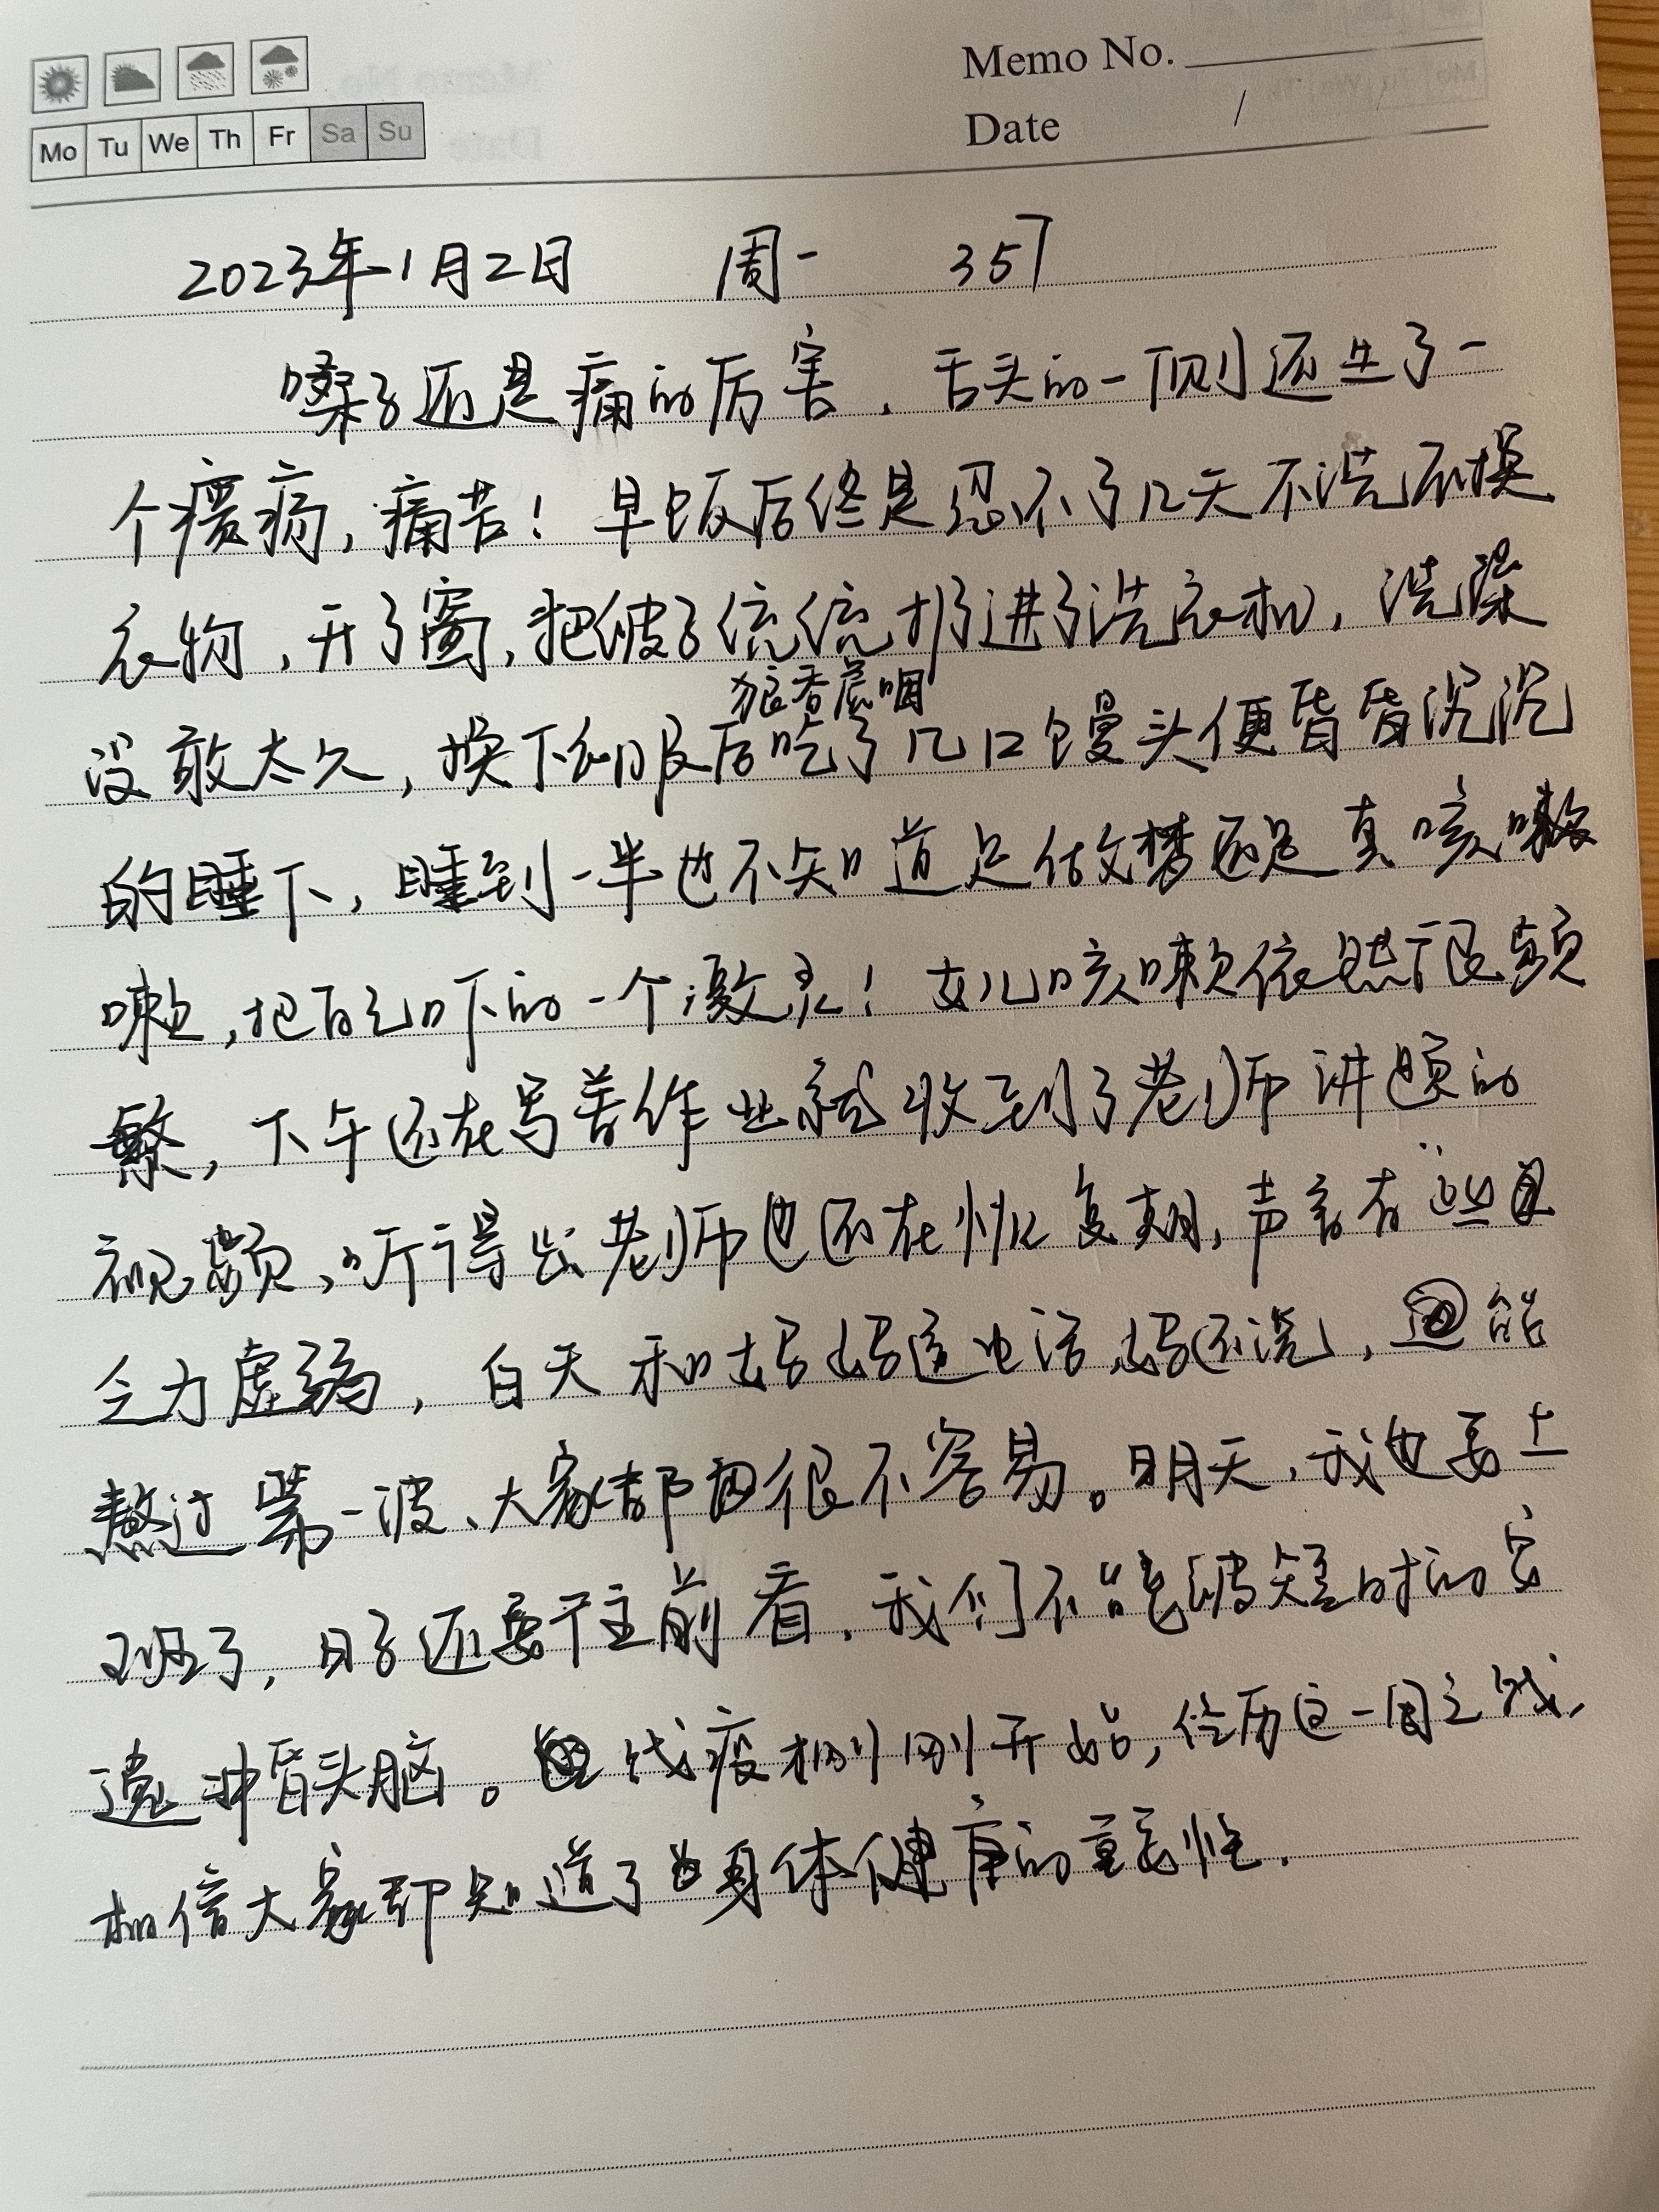 Memo No.
Date /
Mo Tu We Th Fr Sa Su
2023年1月2日 周一 357
嗓子还是痛的厉害，舌头的一侧还生了一
个痍疡，痛苦！早饭后终是忍不了几天不洗不换
衣物，开了窗，把被子统统扔进了洗衣机，洗澡
没敢太久，换下衣服后狼吞虎咽吃了几口馒头便昏昏沉沉
的睡下，睡到一半也不知道是做梦还是真咳嗽
嗽，把自己吓的一个激灵！女儿咳嗽依然很频
繁，下午还在写着作业就收到了老师讲题的
视频，听得出老师也还在恢复期，声音有些
乏力虚弱，白天和妈妈通电话，妈还说，能
熬过第一波、大家都很不容易。明天，我也要上
班了，日子还要往前看，我们不能被短时的
遇冲昏头脑。战疫刚刚开始，经历这一周之战，
相信大家都知道了身体健康的重要性.